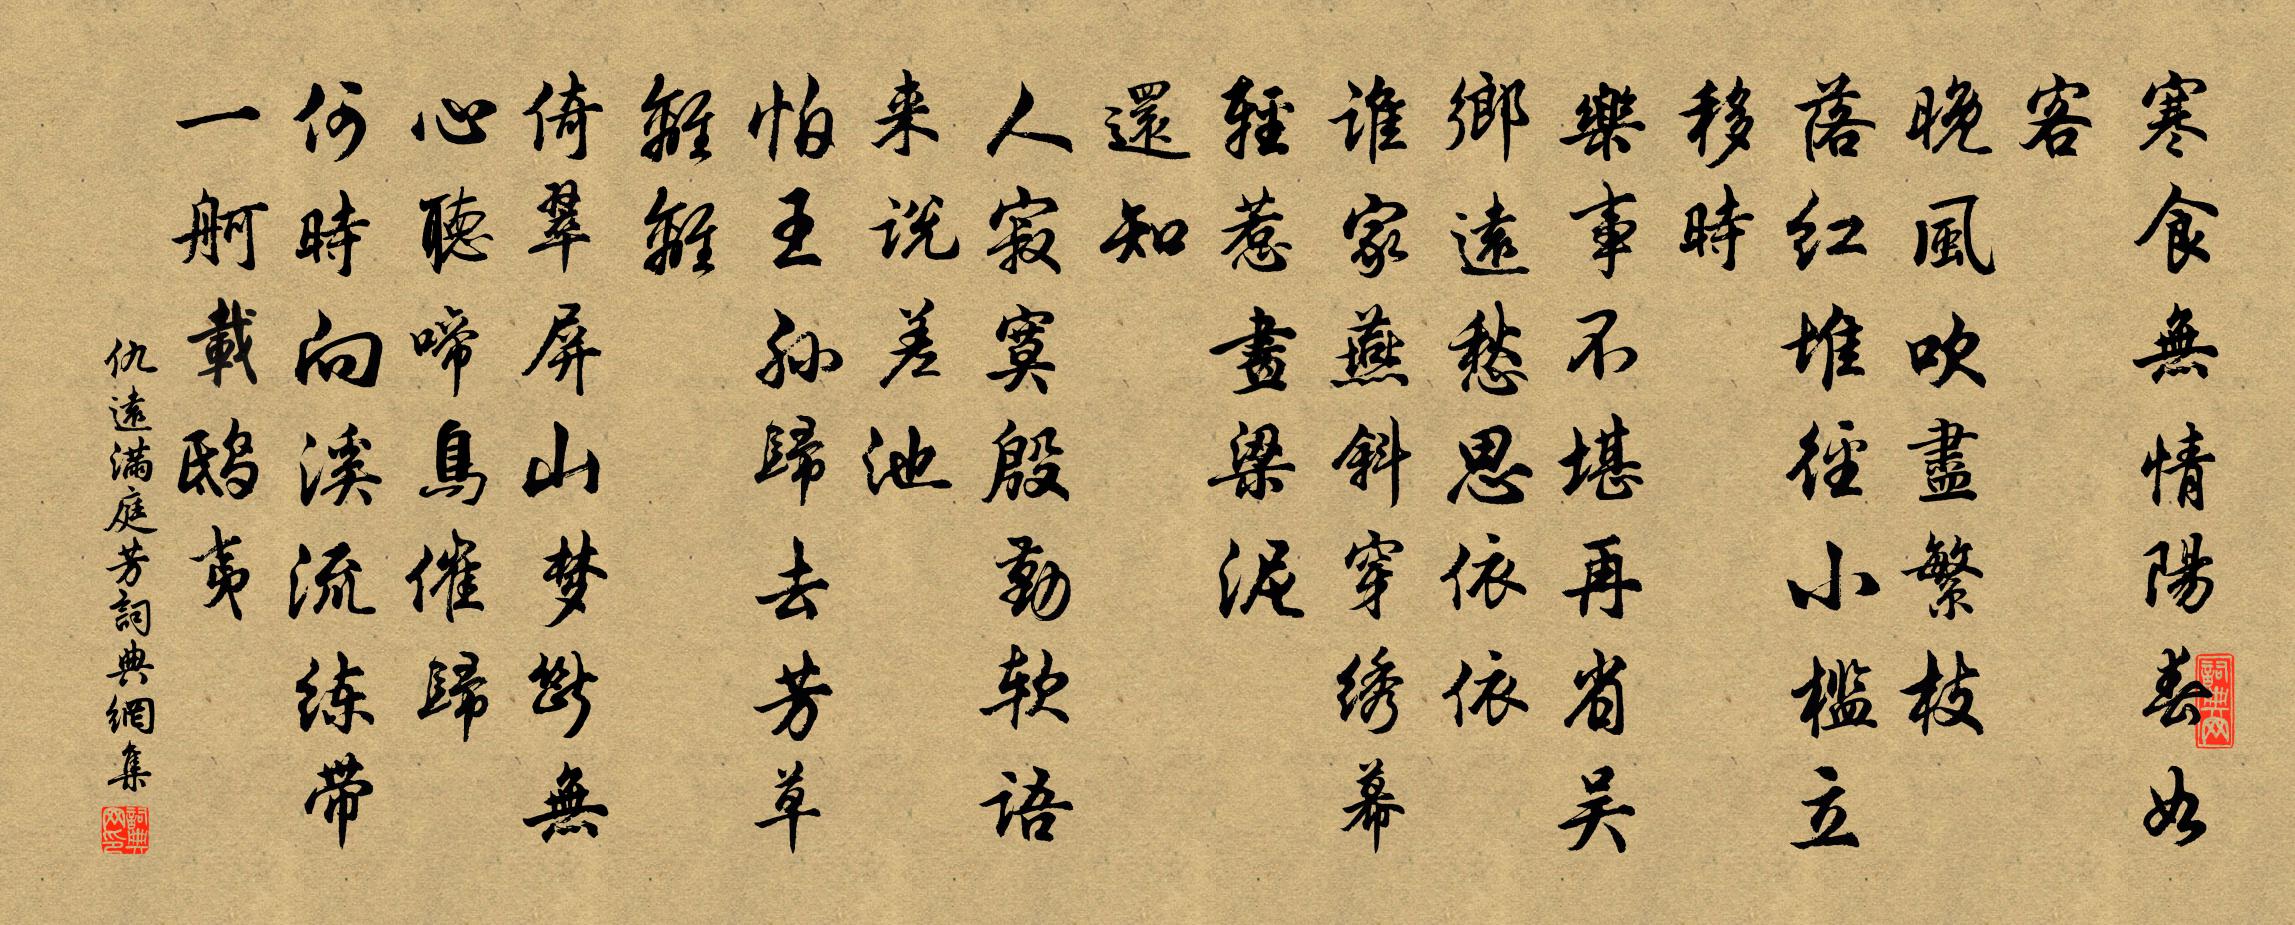 寒食無情陽春如
客
晚風吹盡繁枝
落紅堆徑小檻立
移時
樂事不堪再省吴
鄉遠愁思依依
谁家燕斜穿绣幕
輕惹畫梁泥
還知
人寂寞殷勤软語
来说差池
怕王孙歸去芳草
離離
倚翠屏山梦斷無
心聽啼鳥催歸
何時向溪流练带
一舸載鴟夷
仇遠滿庭芳詞典網集
詞典网
詞典网印